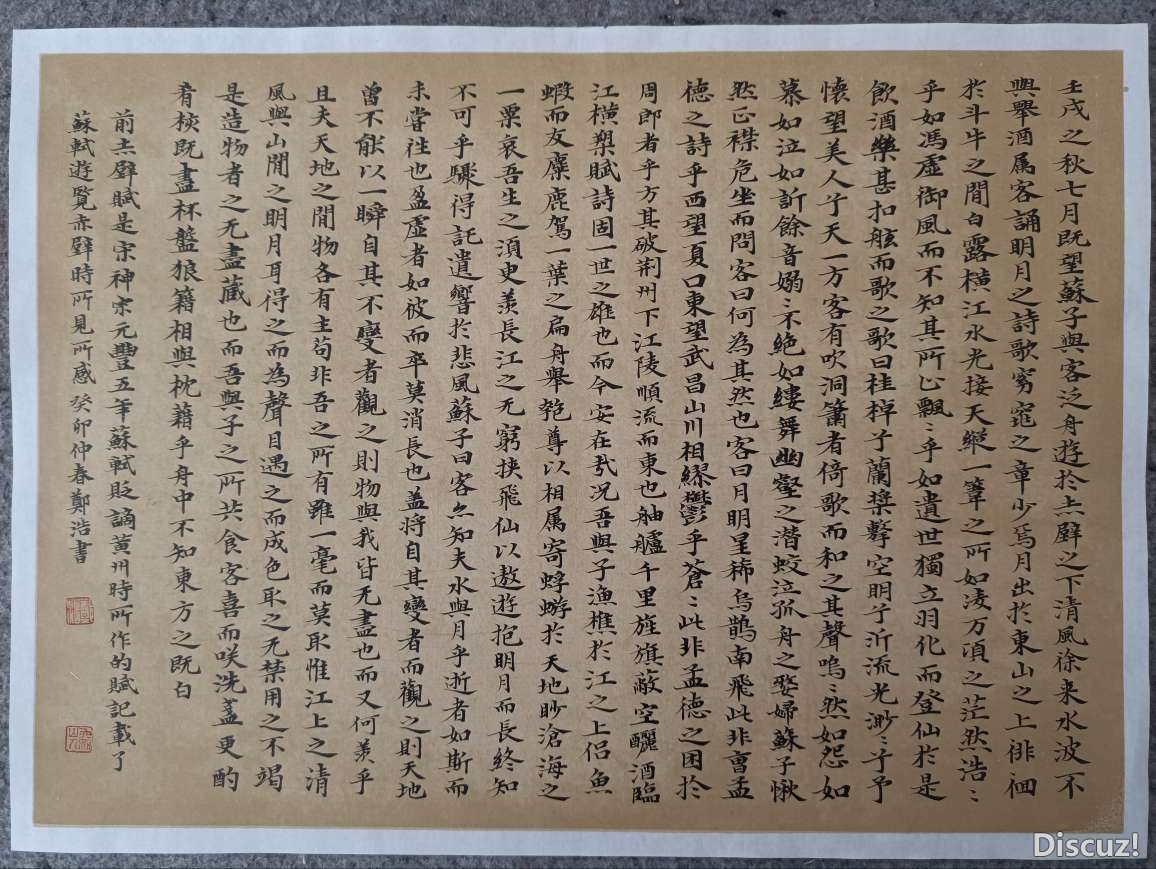 壬戌之秋七月既望蘇子與客泛舟遊於赤壁之下清風徐来水波不
興舉酒属客誦明月之詩歌窈窕之章少焉月出於東山之上徘徊
於斗牛之間白露横江水光接天縱一葦之所如淩万頃之茫然浩〻
乎如馮虚御風而不知其所止飄〻乎如遺世獨立羽化而登仙於是
飲酒樂甚扣舷而歌之歌曰桂棹兮蘭槳擊空明兮泝流光渺〻兮予
懷望美人兮天一方客有吹洞簫者倚歌而和之其聲嗚〻然如怨如
慕如泣如訴餘音嫋〻不絶如縷舞幽壑之潜蛟泣孤舟之嫠婦蘇子愀
然正襟危坐而問客曰何為其然也客曰月明星稀烏鵲南飛此非曹孟
德之詩乎西望夏口東望武昌山川相繆鬱乎蒼〻此非孟德之困於
周郎者乎方其破荆州下江陵順流而東也舳艫千里旌旗蔽空釃酒臨
江横槊賦詩固一世之雄也而今安在哉况吾與子漁樵於江之上侣魚
蝦而友麋鹿駕一葉之扁舟舉匏尊以相属寄蜉蝣於天地眇滄海之
一粟哀吾生之須臾羡長江之无窮挟飛仙以遨遊抱明月而長終知
不可乎驟得託遺響於悲風蘇子曰客亦知夫水與月乎逝者如斯而
未嘗往也盈虚者如彼而卒莫消長也盖将自其變者而觀之則天地
曾不能以一瞬自其不變者觀之則物與我皆无盡也而又何羡乎
且夫天地之間物各有主苟非吾之所有雖一毫而莫取惟江上之清
風與山間之明月耳得之而為聲目遇之而成色取之无禁用之不竭
是造物者之无盡藏也而吾與子之所共食客喜而咲洗盞更酌
肴核既盡杯盤狼籍相與枕藉乎舟中不知東方之既白
前赤壁賦是宋神宗元豐五年蘇軾貶謫黄州時所作的賦記載了
蘇軾遊覽赤壁時所見所感癸卯仲春鄭浩書
Discuz!